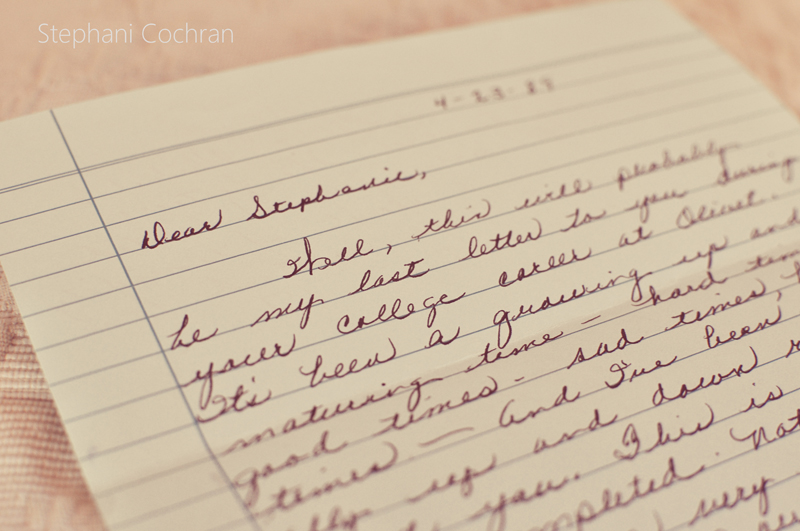 Stephani Cochran
4-23-89
Dear Stephanie,
Well, this will probably
be my last letter to you during
your college career at Olivet.
It's been a growing up and
maturing time - hard
good times - sad times,
times - and I've been
up and down
you. This is
Not
very